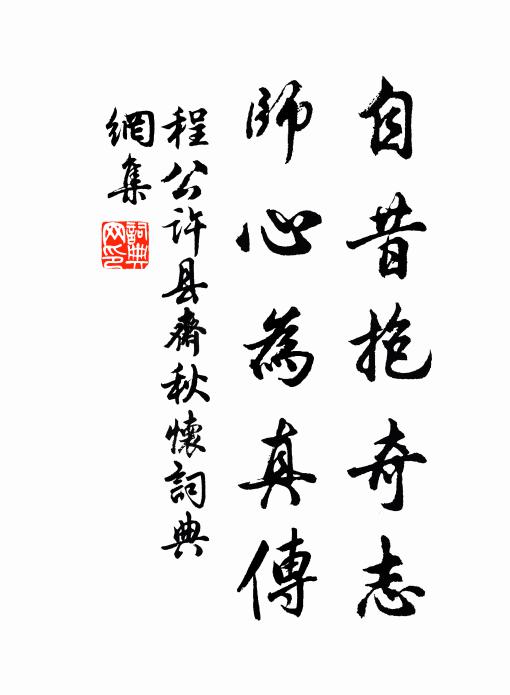 自昔抱奇志
師心為真傳
程公许县齋秋懷詞典
網集
詞典
网印